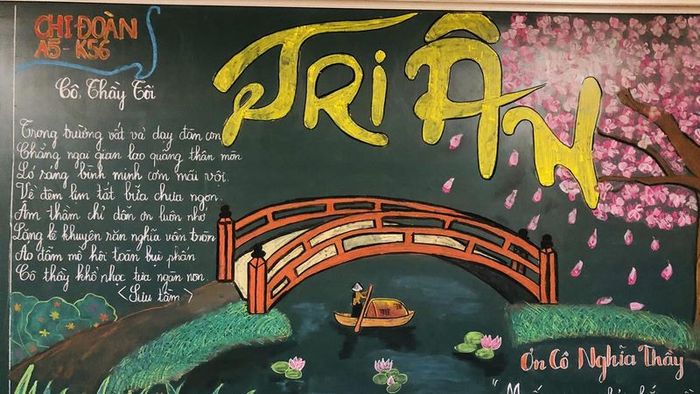 CHI ĐOÀN
A5 - K56
TRI ÂN
Cô Thầy Tôi
Trong trường vất vả dạy đàn con
Chẳng ngại gian lao quảng thân mòn
Ló sáng bình minh cơm mãi vội
Về đêm lim tắt bữa chưa ngon
Âm thầm chỉ dẫn ơn luôn nhớ
Lặng lẽ khuyên răn nghĩa vẫn tròn
Áo đẫm mồ hôi toan bụi phấn
Cô thầy khổ nhọc tựa ngàn non
<Sưu tầm>
Ơn Cô Nghĩa Thầy